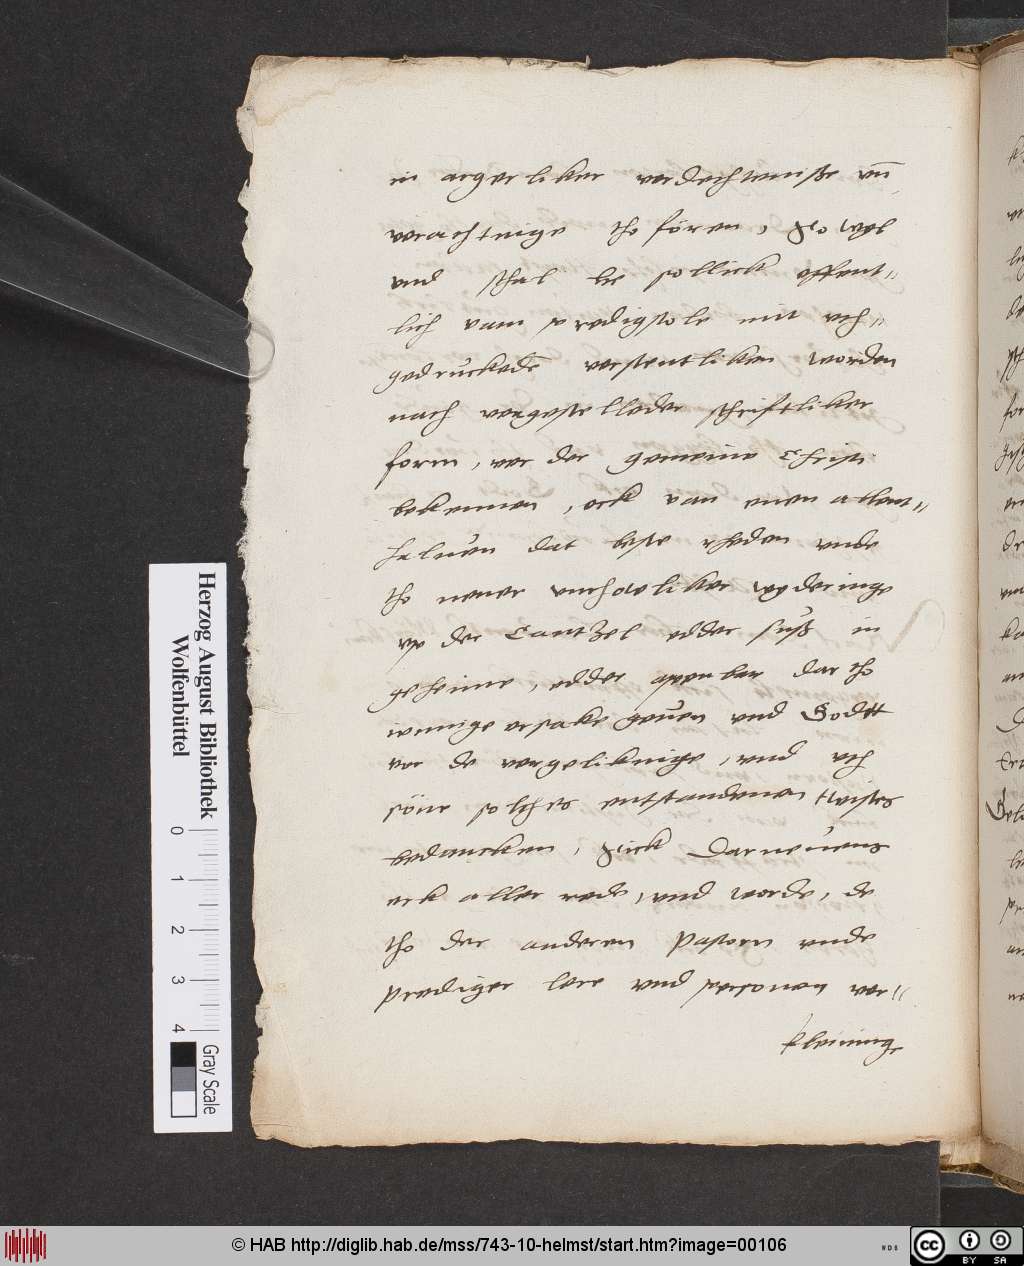 in argerliker verdechtenisse vn̄
verachtnige tho fören, So wyl
vnd schal he sollick offent⸗
lich vam predigstole mit vth⸗
gedruckedē verstentliken worden
nach vorgestelleder schriftliker
form, vor der gemeine Christi
bekennen, ock van enen allent⸗
haluen dat beste rheden vnde
tho nener vnchowliker wyderinge
vp der Cantzel edder suß in
geheime, edder apenbar dar tho
ennige orsake geuen vnd Godtt
vor de vorgeliknige, vnd vth
söne solches entstandenen twistes
bedancken, Sick darneuens
ock aller rede, vnd worde, de
tho der anderen Pastorn vnde
Prediger lere vnd personen vor⸗
kleining
Herzog August Bibliothek
Wolfenbüttel
0 1 2 3 4
Gray Scale
© HAB http://diglib.hab.de/mss/743-10-helmst/start.htm?image=00106
WDB
cc
BY SA